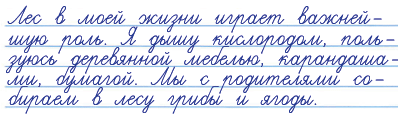 Лес в моей жизни играет важней-
шую роль. Я дышу кислородом, поль-
зуюсь деревянной мебелью, карандаша-
ми, бумагой. Мы с родителями со-
бираем в лесу грибы и ягоды.